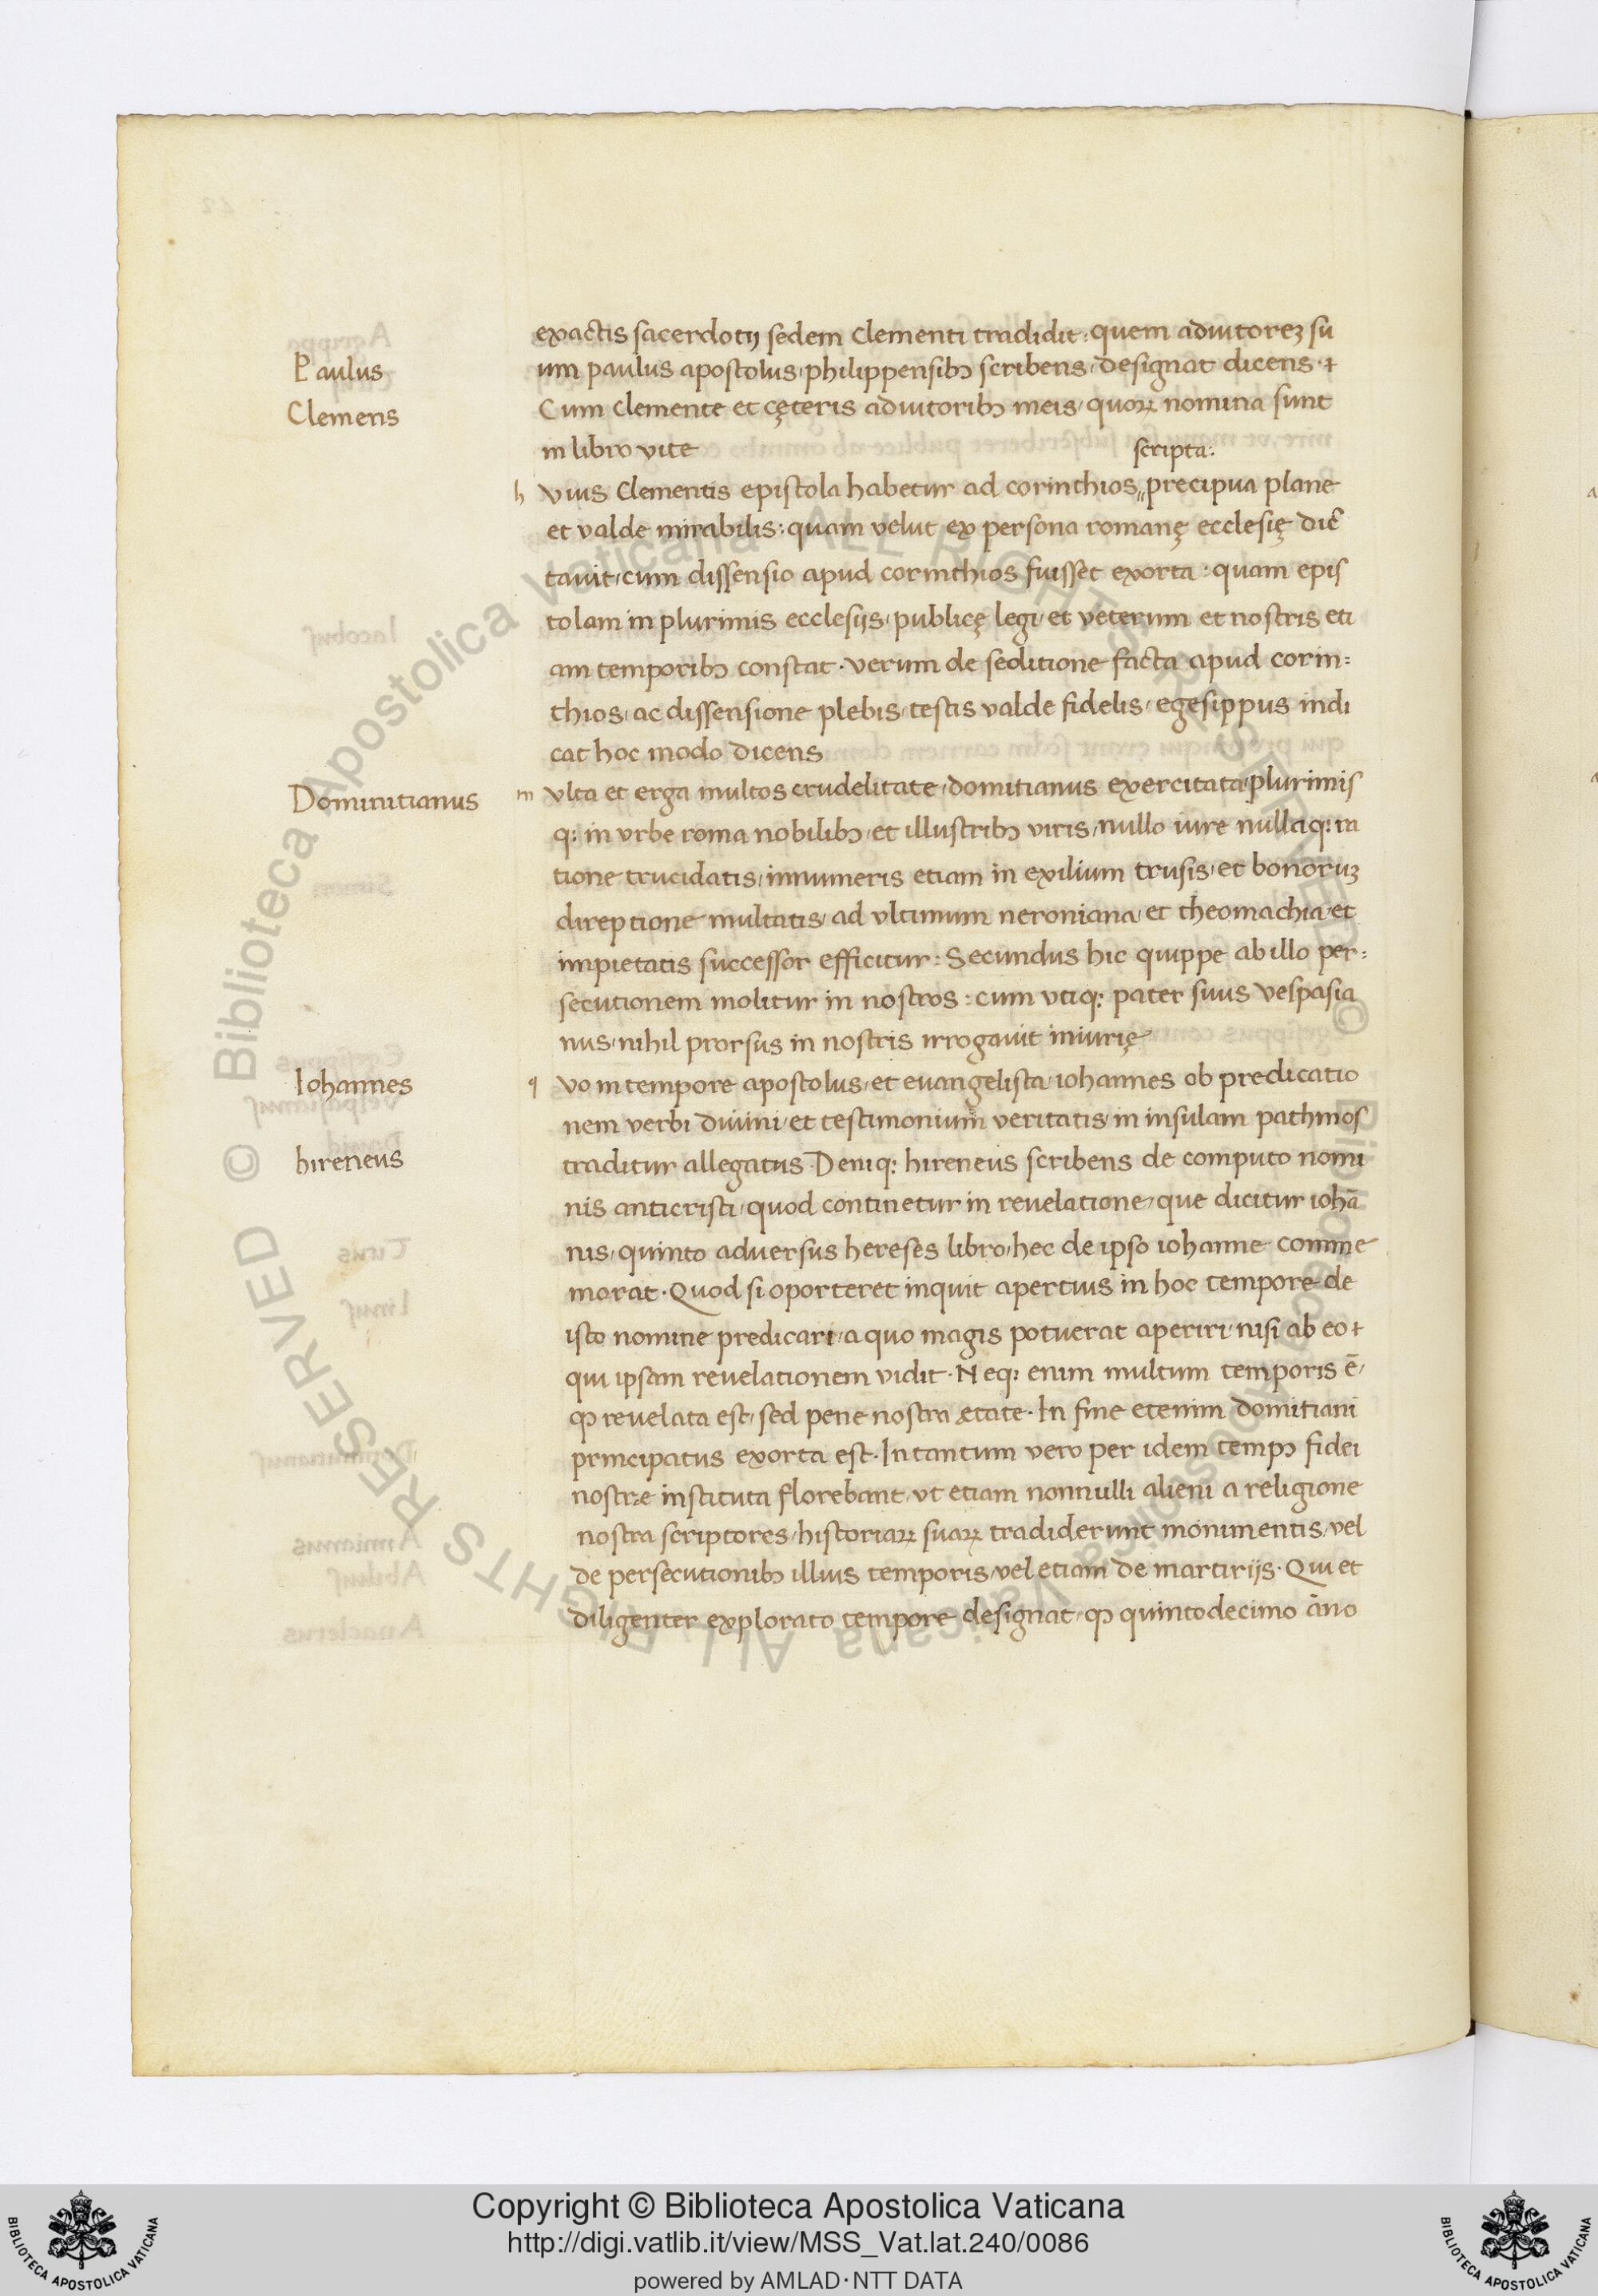 exactis sacerdotij sedem Clementi tradidit: quem adiutoreʒ su
Paulus
um paulus apostolus, philippensibꝫ scribens, designat dicens.
Clemens
Cum Clemente et cęteris adiutoribꝫ meis, quoꝝ nomina sunt
in libro vite
scripta:
h vius Clementis epistola habetur ad corinthios,, precipua plane
et valde mirabilis: quam velut ex persona romanę ecclesię dic̄
tauit, cum dissensio apud corinthios fuisset exorta: quam epis
tolam in plurimis ecclesijs, publicę legi, et veterum et nostris eti
am temporibꝫ constat. verum de seditione facta apud corin=
thios, ac dissensione plebis, testis valde fidelis, egesippus indi
cat hoc modo dicens
Dominitianus
m vlta et erga multos crudelitate, domitianus exercitata, plurimis
q: in vrbe roma nobilibꝫ, et illustribꝫ viris, nullo iure nullaq: ra
tione trucidatis, innumeris etiam in exilium trusis, et bonoruʒ
direptione multatis, ad vltimum neroniana, et theomachia, et
impietatis successor efficitur: Secundus hic quippe ab illo per=
secutionem molitur in nostros: cum vtiq: pater suus vespasia
nus, nihil prorsus in nostris irrogauit iniurię
Iohannes
q vo in tempore apostolus, et euangelista, iohannes ob predicatio
nem verbi diuini, et testimonium veritatis, in insulam pathmos
hireneus
traditur allegatus. Deniq: hireneus scribens de computo nomi
nis anticristi, quod continetur in reuelatione, que dicitur iohā
nis, quinto aduersus hereses libro, hec de ipso iohanne comme
morat. Quod si oporteret inquit apertius in hoc tempore de
isto nomine predicari, a quo magis potuerat aperiri, nisi ab eo
qui ipsam reuelationem vidit. Neq: enim multum temporis ē,
ꝙ reuelata est, sed pene nostra ętate. In fine etenim domitiani
principatus exorta est. In tantum vero per idem tempꝫ fidei
nostræ instituta florebant, vt etiam nonnulli alieni a religione
nostra scriptores, historiaꝝ suaꝝ tradiderunt monimentis, vel
de persecutionibꝫ illius temporis, vel etiam de martirijs. Qui et
diligenter explorato tempore designat, ꝙ quintodecimo āno
© Biblioteca Apostolica Vaticana ALL RIGHTS RESERVED
© Biblioteca Apostolica Vaticana ALL RIGHTS RESERVED
Copyright © Biblioteca Apostolica Vaticana
http://digi.vatlib.it/view/MSS_Vat.lat.240/0086
powered by AMLAD·NTT DATA
BIBLIOTECA APOSTOLICA VATICANA
BIBLIOTECA APOSTOLICA VATICANA